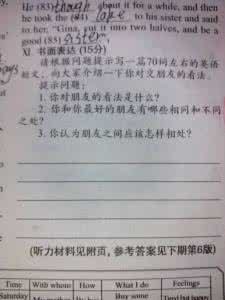 He (83) though about it for a while, and then
he took the cape to his sister and said
to her, "Gina, cut it into two halves, and be a
good (85) sister."
XI 书面表达 (15分)
请根据问题提示写一篇70词左右的英语
短文,向大家介绍一下你对交朋友的看法。
提示问题:
1. 你对朋友的看法是什么?
2. 你和你最好的朋友有哪些相同和不同
之处?
3. 你认为朋友之间应该怎样相处?
(听力材料见附页,参考答案见下期第6版)
Time With whom How What I do Feelings
Saturday Buy some Tired but happy